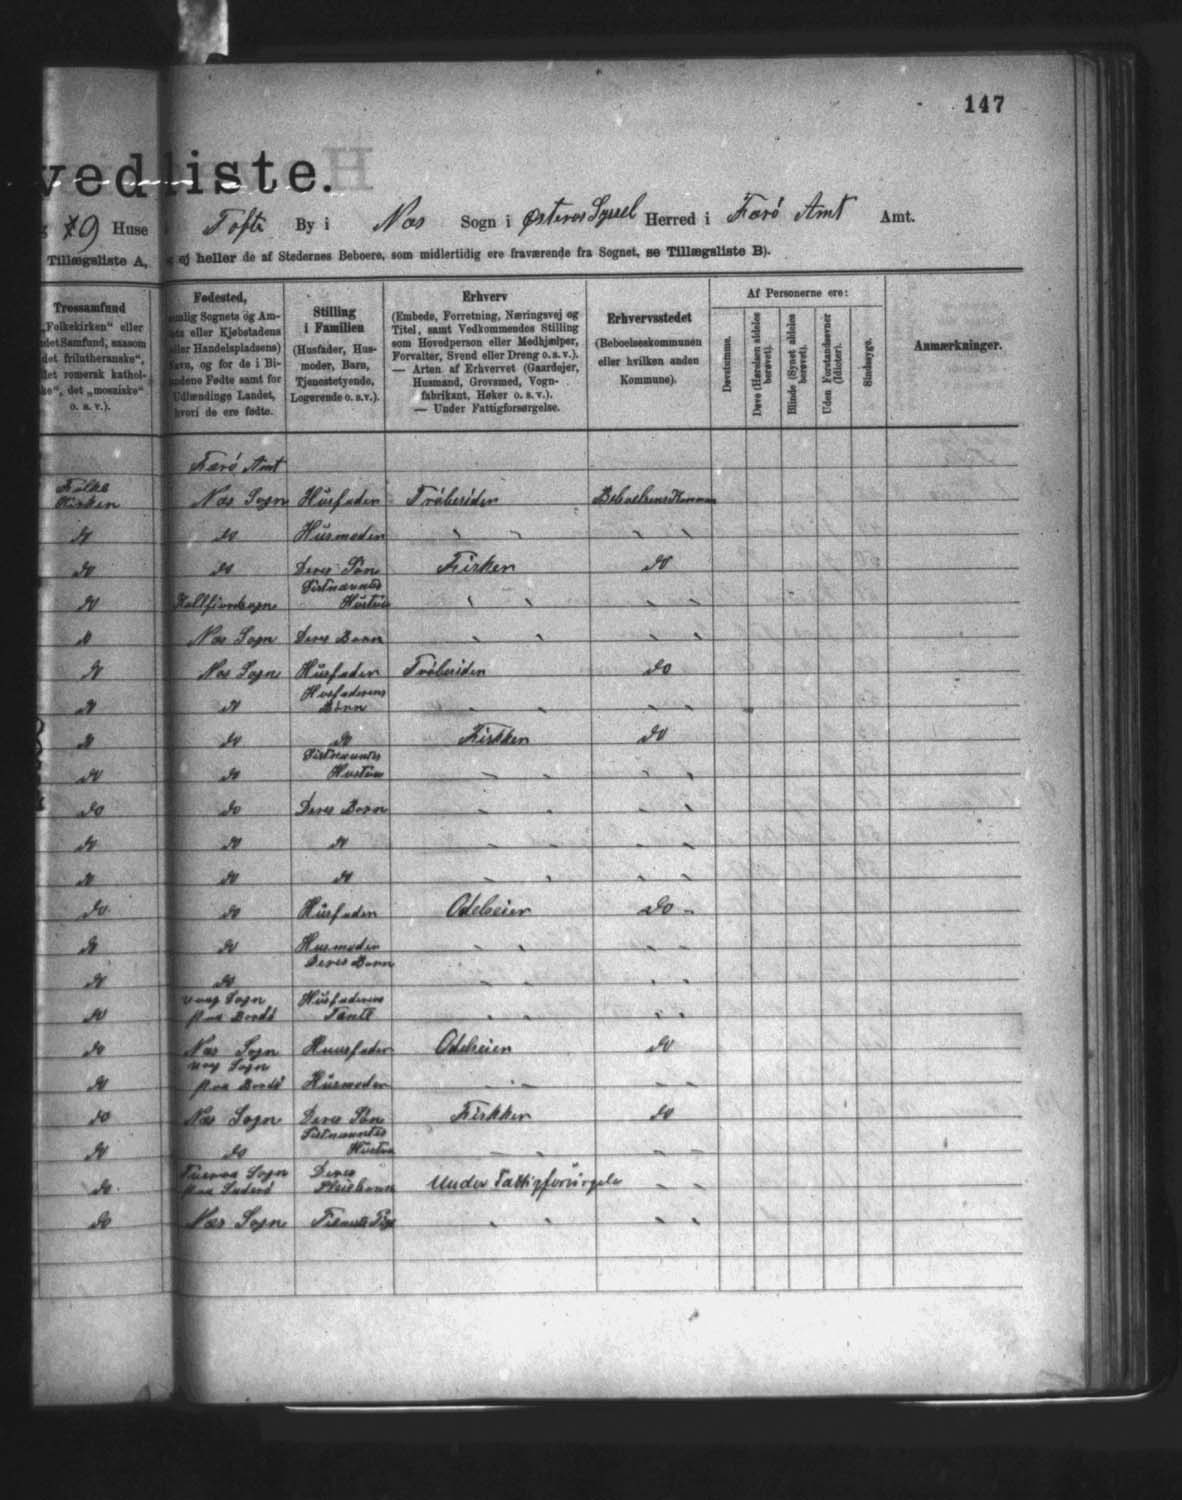 147
vedliste.
19 Huse i Tofte By i Næs Sogn i Østerøs Syssel Herred i Færø Amt Amt.
Tillægsliste A, ej heller de af Stedernes Beboere, som midlertidig ere fraværende fra Sognet, se Tillægsliste B).
Trossamfund
„Folkekirken“ eller
det Samfund, saasom
det frilutheranske“,
det romersk kathol-
ke“, det „mosaiske“
o. s. v.).
Fødested,
mlig Sognets og Am-
ts eller Kjøbstadens
ller Handelspladsens)
Navn, og for de i Bi-
ndene Fødte samt for
Udlændinge Landet,
hvori de ere fødte.
Stilling
i Familien
(Husfader, Hus-
moder, Barn,
Tjenestetyende,
Logerende o. s. v.).
Erhverv
(Embede, Forretning, Næringsvej og
Titel, samt Vedkommendes Stilling
som Hovedperson eller Medhjælper,
Forvalter, Svend eller Dreng o. s. v.).
— Arten af Erhvervet (Gaardejer,
Husmand, Grovsmed, Vogn-
fabrikant, Høker o. s. v.).
— Under Fattigforsørgelse.
Erhvervsstedet
(Beboelseskommunen
eller hvilken anden
Kommune).
Af Personerne ere:
Døvstumme.
Døve (Hørelsen aldeles berøvet).
Blinde (Synet aldeles berøvet).
Uden Forstandsevner (Idioter).
Sindssyge.
Anmærkninger.
Færø Amt
Folke
Kirken Næs Sogn Husfader Beboelsens Kommun
do do Husmoder " " " "
do do Deres Søn Fisker do
Sistnævntes
do Hustru " " " "
do Næs Sogn Deres Barn " " " "
do Næs Sogn Husfader do
Husfaderens
do do Børn " " " "
do do do Fiskker do
Sistnævntes
do do Hustru " " " "
do do Deres Barn " " " "
do do do " " " "
do do do " " " "
do do Husfader Odelseier do "
do do Husmoder " " " "
Deres Barn
do do " " " "
vaag Sogn Husfaderens
do paa Bordø Tante " " " "
do Næs Sogn Huusfader Odelseier do
vaag Sogn
do paa Bordø Husmoder " " " "
do Næs Sogn Deres Søn Fiskker do
Sistnævntes
do do Hustru " " " "
Sogn Deres
do paa Suderø Pleiebarn Under Fattigforsørgelse " "
do Næs Sogn Tieneste Pige " " " "